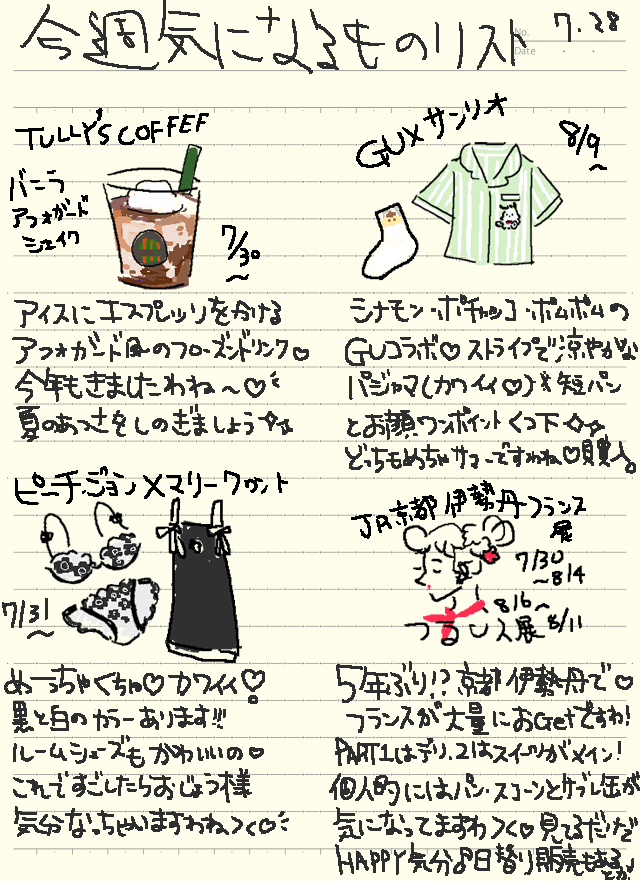 今週気になるものリスト 7.28
No.
Date
TULLY'S COFFEE
バニラ
アフォガード
シェイク
7/30
～
アイスにエスプレッソをかける
アフォガード風のフローズンドリンク♡
今年もきましたわね～♡
夏のあつさをしのぎましょう☆
GU×サンリオ
8/9
～
シナモン・ポチャッコ・ポムポムの
GUコラボ♡ストライプで涼やかな
パジャマ(カワイイ♡)×短パン
とお顔ワンポイントくつ下
どっちもめっちゃサマーですわね♡購入。
ピーチ・ジョン×マリークヮント
7/31
～
めーっちゃくちゃ♡カワイイ♡
黒と白のカラーあります!!!
ルームシューズもかわいいの♡
これですごしたらおじょう様
気分なっちゃいますわね><♡
JR京都伊勢丹フランス
展
7/30
～8/4
8/6～
8/11
5年ぶり!?京都伊勢丹で♡
フランスが大量におGetですわ!
PART1はデリ、2はスイーツがメイン!
個人的にはパン・スコーンとサブレ缶が
気になってますわ><♡見てるだけだ
HAPPY気分♪日替り販売もある
とか